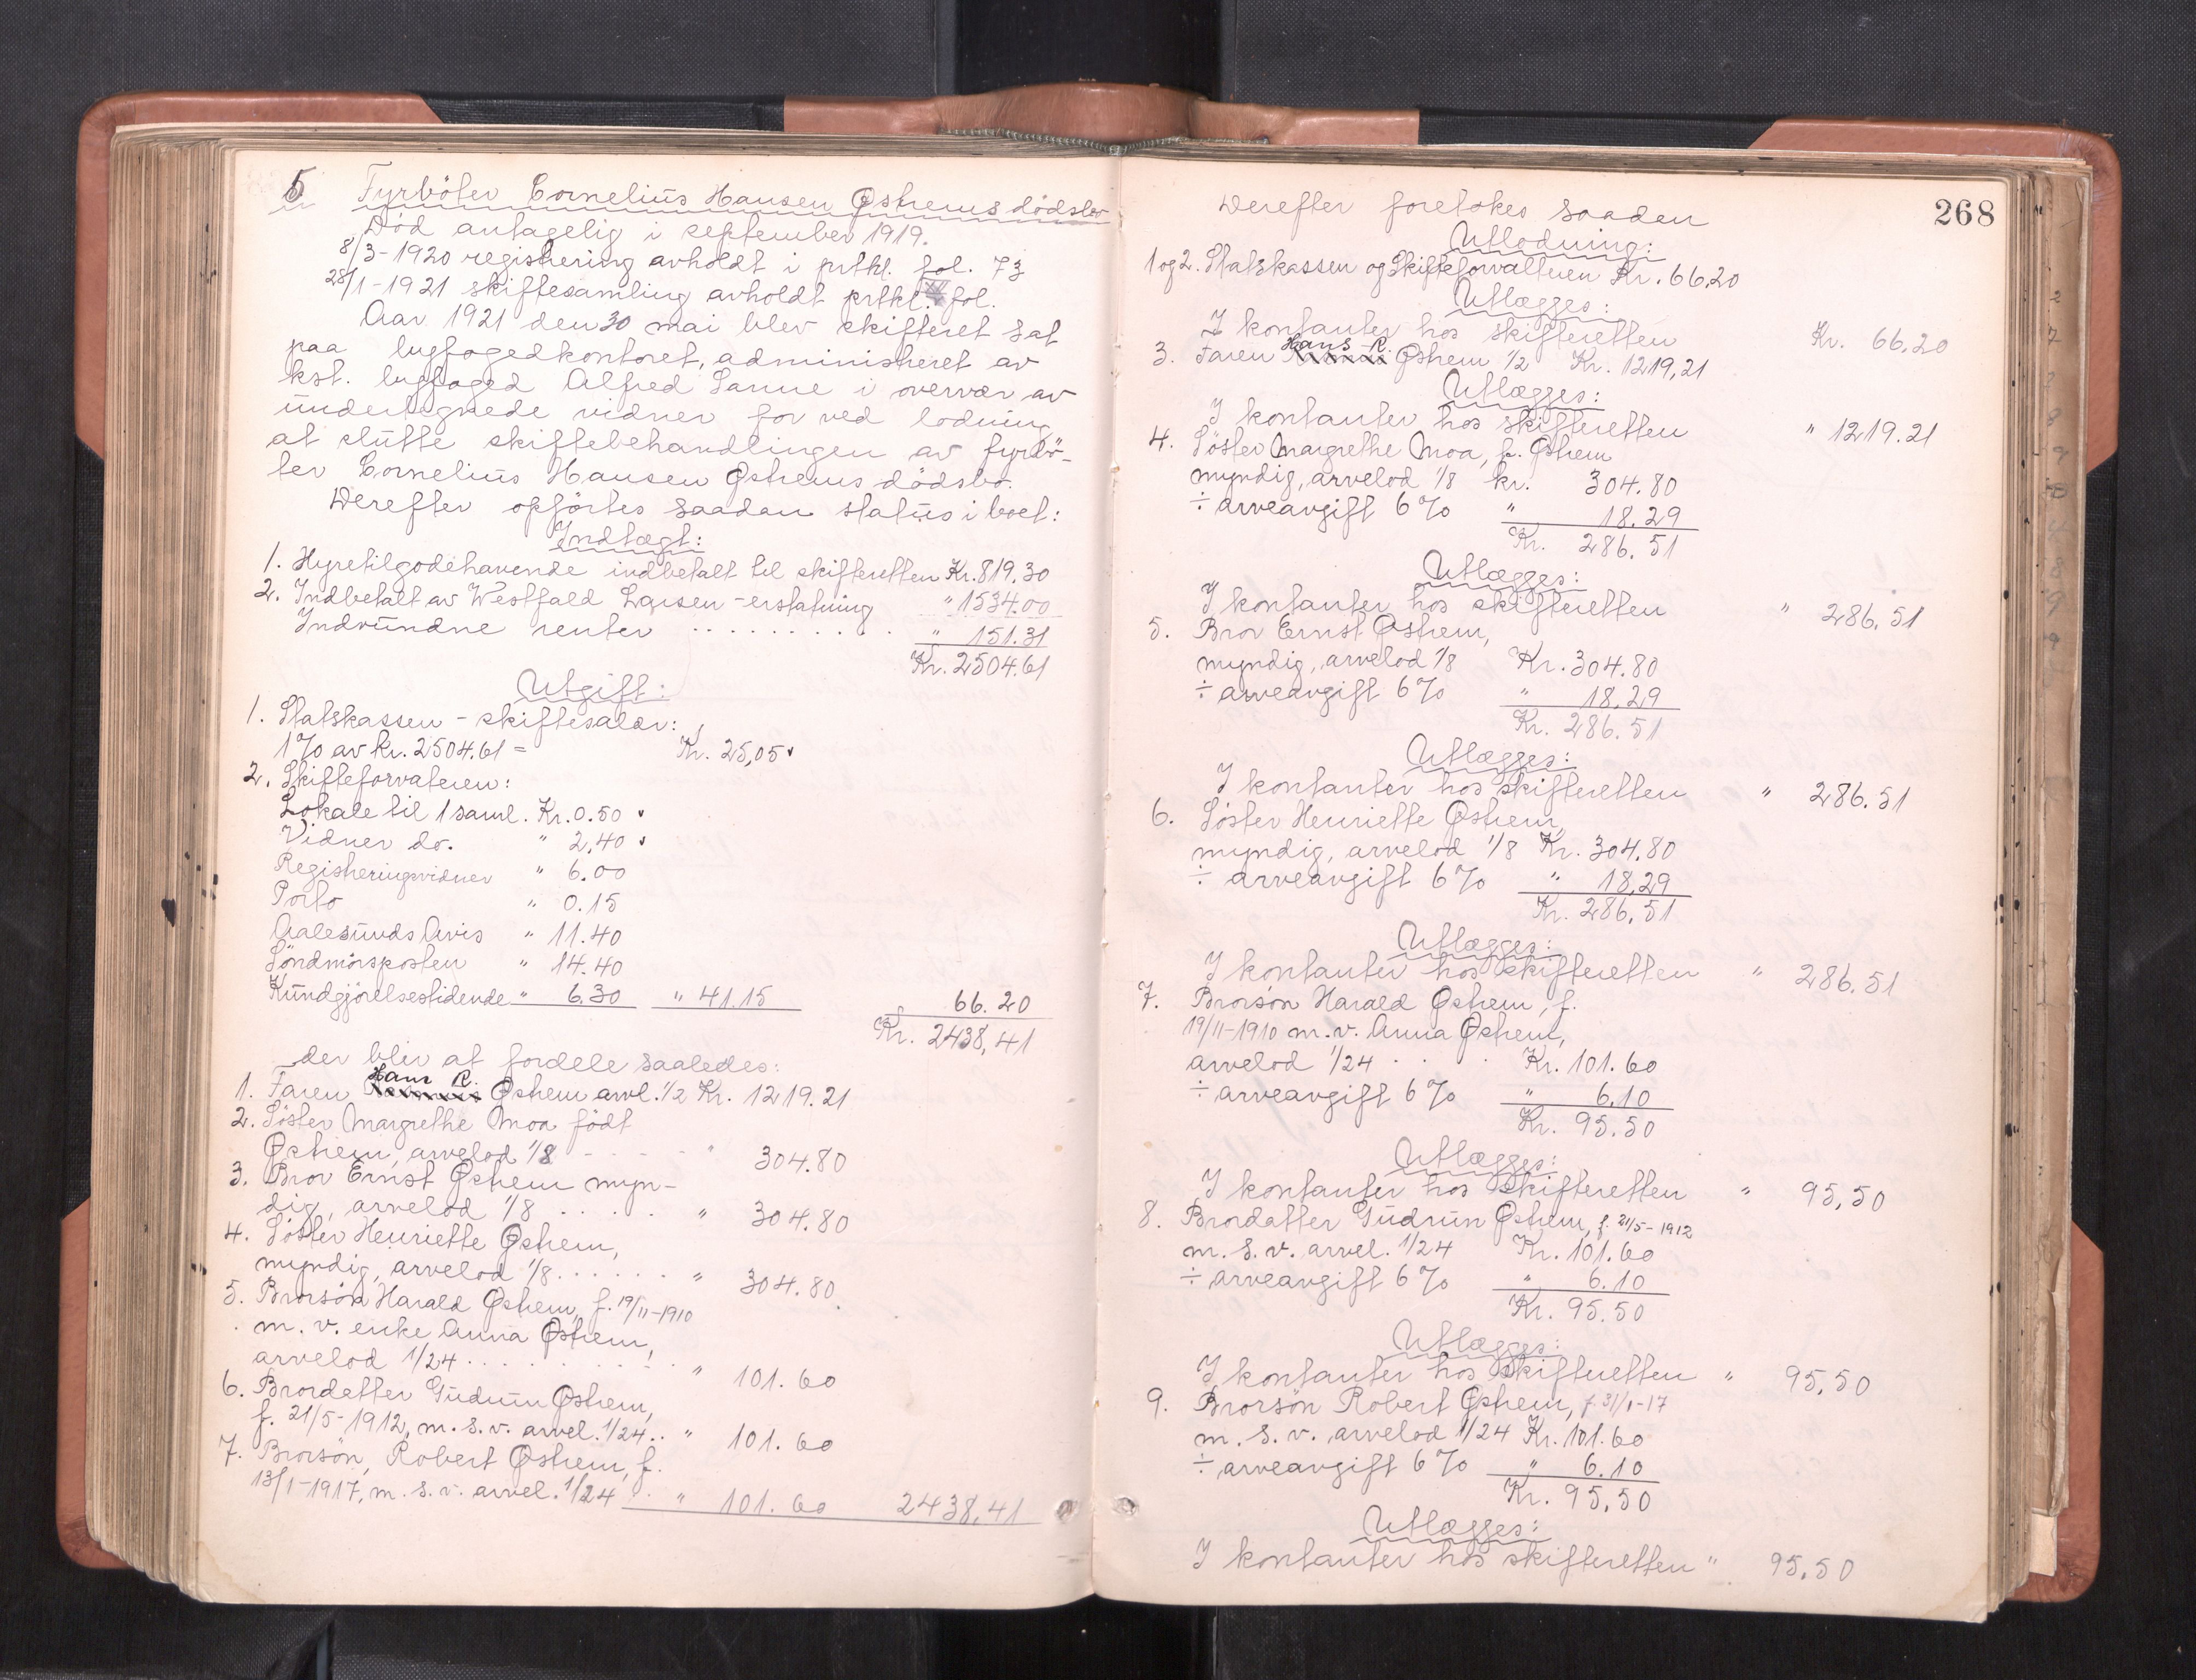 5 Fyrböter Cornelius Hansen Østrems dödsbo
Död antagelig i september 1919.
8/3-1920 registrering avholdt i prtkl. fol. 73
28/1-1921 skiftesamling avholdt prtkl. fol.
Aar 1921 den 30 mai blev skifteret sat
paa byfogedkontoret, administreret av
kst. byfoged Alfred Sanne i overvær av
undertegnede vidner for ved lodning
at slutte skiftebehandlingen av fyrbö-
ter Cornelius Hansen Østrems dödsbo.
Derefter opförtes saadan status i boet:
Indtægt:
1. Hyretilgodehavende indbetalt til skifteretten Kr. 819.30
2. Indbetalt av Westfald Larsen - erstatning " 1534.00
Indvundne renter . . . . . . . . . . " 151.31
Kr. 2504.61
Utgift:
1. Statskassen - skiftesalær:
1% av kr. 2504.61 = Kr. 25,05
2. Skifteforvateren:
Lokale til 1 saml. Kr. 0.50
Vidner do. " 2,40
Registeringsvidner " 6.00
Porto " 0.15
Aalesunds Avis " 11.40
Söndmörsposten " 14.40
Kundgjörelsestidende " 6.30 " 41.15 66.20
Kr. 2438,41
der blir at fordele saaledes:
1. Faren Hans R. Østrem arvl. 1/2 Kr. 1219.21
2. Söster Margrethe Moa födt
Østrem, arvelod 1/8 - - - - " 304.80
3. Bror Ernst Østrem myn-
dig, arvelod 1/8 . . . . . " 304.80
4. Söster Henriette Østrem,
myndig, arvelod 1/8 . . . . . . " 304.80
5. Brorsön Harald Østrem, f. 19/11-1910
m. v. enke Anna Østrem,
arvelod 1/24 . . . . . . . . . . " 101.60
6. Brordatter Gudrun Østrem,
f. 21/5-1912, m. s. v. arvel. 1/24 . . " 101.60
7. Brorsön, Robert Østrem, f.
13/1-1917, m. s. v. arvel. 1/24 . . " 101.60 2438,41
268
Derefter foretokes saadan
Utlodning:
1 og 2. Statskassen og Skifteforvalteren Kr. 66.20
Utlægges:
I kontanter hos skifteretten Kr. 66.20
3. Faren Hans R. Østrem 1/2 Kr. 1219,21
Utlægges:
I kontanter hos skifteretten " 1219.21
4. Söster Margrethe Moa, f. Østrem
myndig, arvelod 1/8 kr. 304.80
÷ arveavgift 6% " 18.29
Kr. 286.51
Utlægges:
I kontanter hos skifteretten " 286.51
5. Bror Ernst Østrem,
myndig, arvelod 1/8 Kr. 304.80
÷ arveavgift 6% " 18,29
Kr. 286.51
Utlægges:
I kontanter hos skifteretten " 286.51
6. Söster Henriette Østrem,
myndig, arvelod 1/8 Kr. 304.80
÷ arveavgift 6% " 18,29
Kr. 286,51
Utlægges:
I kontanter hos skifteretten " 286,51
7. Brorsön Harald Østrem, f.
19/11-1910 m. v. Anna Østrem,
arvelod 1/24 . . . Kr. 101.60
÷ arveavgift 6% " 6.10
Kr. 95.50
Utlægges:
I kontanter hos skifteretten " 95,50
8. Brordatter Gudrun Østrem, f. 21/5-1912
m. s. v. arvel. 1/24 Kr. 101.60
÷ arveavgift 6% " 6.10
Kr. 95.50
Utlægges:
I kontanter hos skifteretten " 95,50
9. Brorsön Robert Østrem, f. 31/1-17
m. s. v. arvelod 1/24 Kr. 101.60
÷ arveavgift 6% " 6.10
Kr. 95,50
Utlægges:
I kontanter hos skifteretten " 95.50